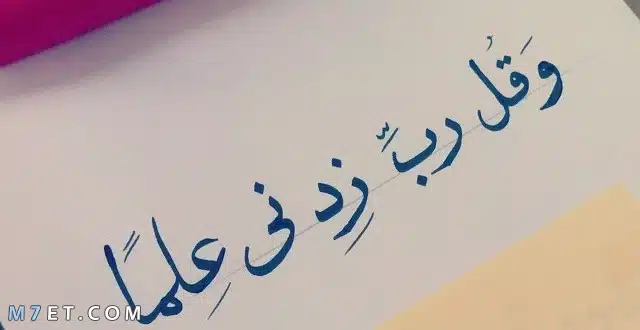 وَقُل ربِّ زِدنى عِلمًا
M7ET.COM